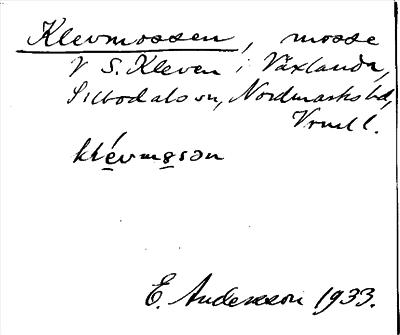 Klevmossen, mosse
V S. Kleven i Växlanda,
Silbodals sn, Nordmarks hd,
Vrml l.
klévmo̱sən
E. Andersson 1933.